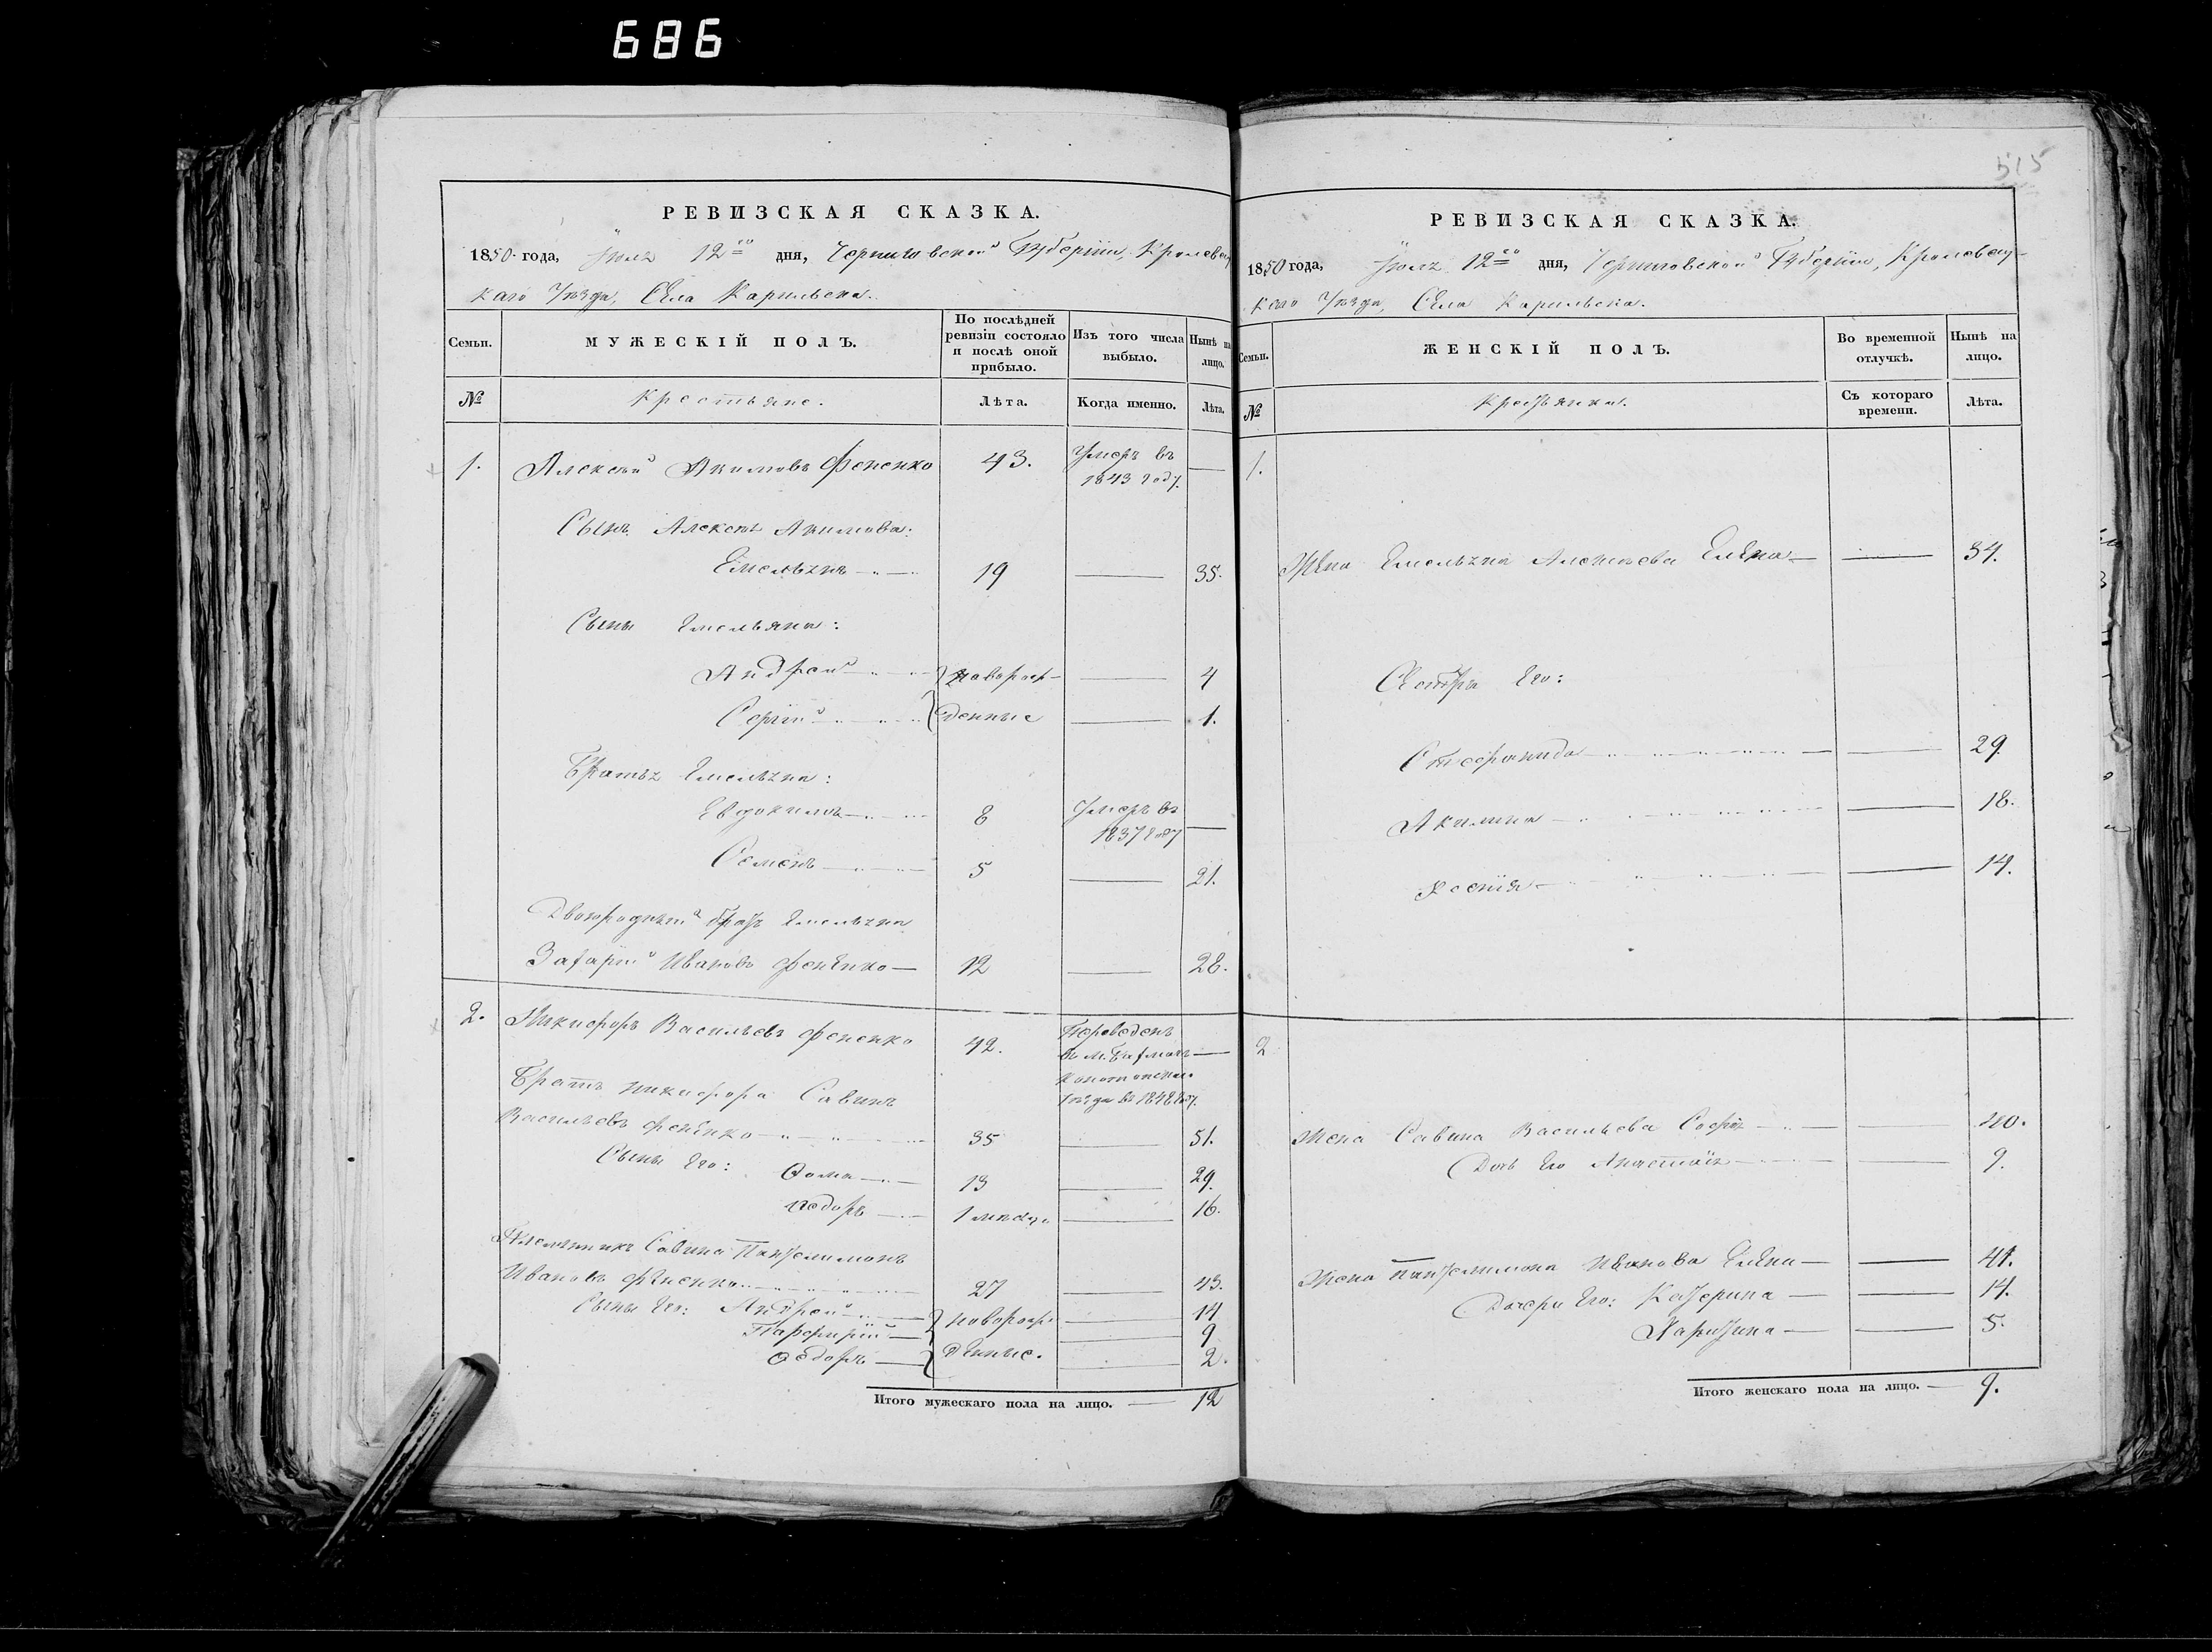 686
515
РЕВИЗСКАЯ СКАЗКА.
1850 года, Іюля 12го дня, Черниговской Губерніи, Кролевец
каго Уѣзда, Села Карильска.
Семьи.
МУЖЕСКІЙ ПОЛЪ.
По послѣдней ревизіи состояло и послѣ оной прибыло.
Изъ того числа выбыло.
Нынѣ на лицо.
№
Крестьяне.
Лѣта.
Когда именно.
Лѣта.
1. Алексѣй Акимовъ Фененко 43. Умеръ въ 1843 году.
Сынъ Алексѣя Акимова:
Емельянъ 19 35.
Сыны Емельяна:
Андрей новорож- 4
Сергій денные 1.
Братья Емельяна:
Евдокимъ 8 Умеръ въ 1837 году
Семенъ 5 21.
Двоюродный братъ Емельяна
Захарій Ивановъ Фененко 12 28.
2. Никифоръ Васильевъ Фененко 42. Переведенъ
въ м. Бахмачъ
Конотопскаго
Уѣзда въ 1848 году.
Братъ Никифора Савинъ
Васильевъ Фененко 35 51.
Сыны Его: Фома 13 29.
Федоръ 1 мѣсяц 16.
Племянникъ Савина Пантелимонъ
Ивановъ Фененко 27 43.
Сыны Его: Андрей новорож- 14
Парфирій 9
Федоръ денные. 2.
Итого мужескаго пола на лицо. 12
РЕВИЗСКАЯ СКАЗКА.
1850 года, Іюля 12го дня, Черниговской Губерніи, Кролевец-
каго Уѣзда, Села Карильска.
Семьи.
ЖЕНСКІЙ ПОЛЪ.
Во временной отлучкѣ.
Нынѣ на лицо.
№
Крестьянки.
Съ котораго времени.
Лѣта.
1.
Жена Емельяна Алексѣева Елена 34.
Сестры Его:
Стефанида 29
Акилина 18.
Ксенія 14.
2
Жена Савина Васильева Софія 40.
Дочь Его Анастасія 9.
Жена Пантелимона Иванова Елена 41.
Дочери Его: Катерина 14.
Харитина 5.
Итого женскаго пола на лицо. 9.